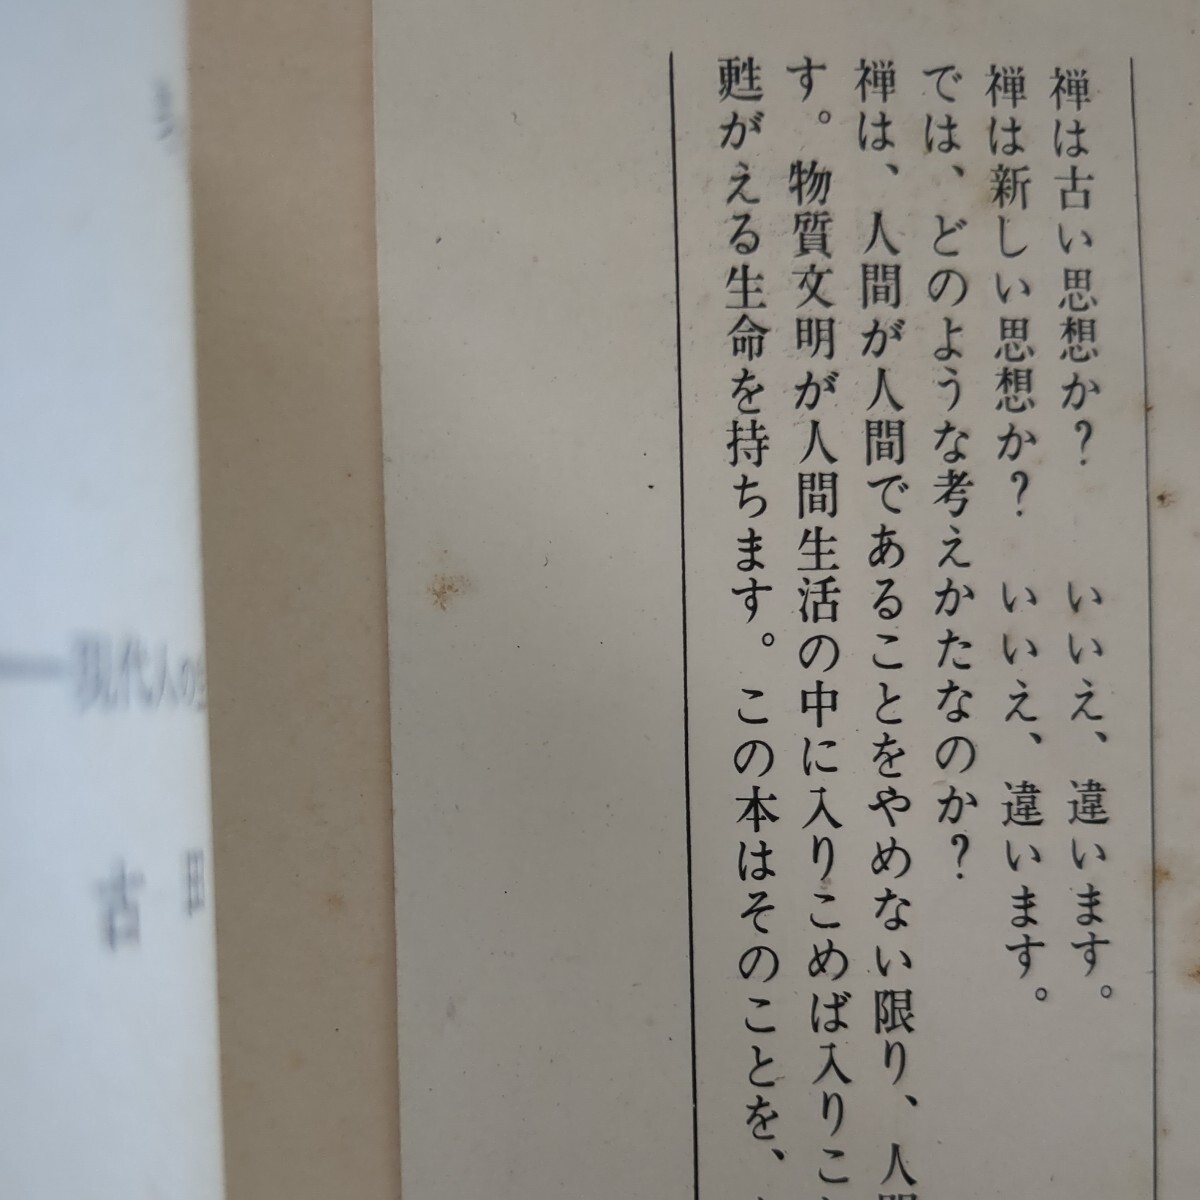 禅は古い思想か？　いいえ、違います。
禅は新しい思想か？　いいえ、違います。
では、どのような考えかたなのか？
禅は、人間が人間であることをやめない限り、人
す。物質文明が人間生活の中に入りこめば入りこ
甦がえる生命を持ちます。この本はそのことを、
――現代人の
古田